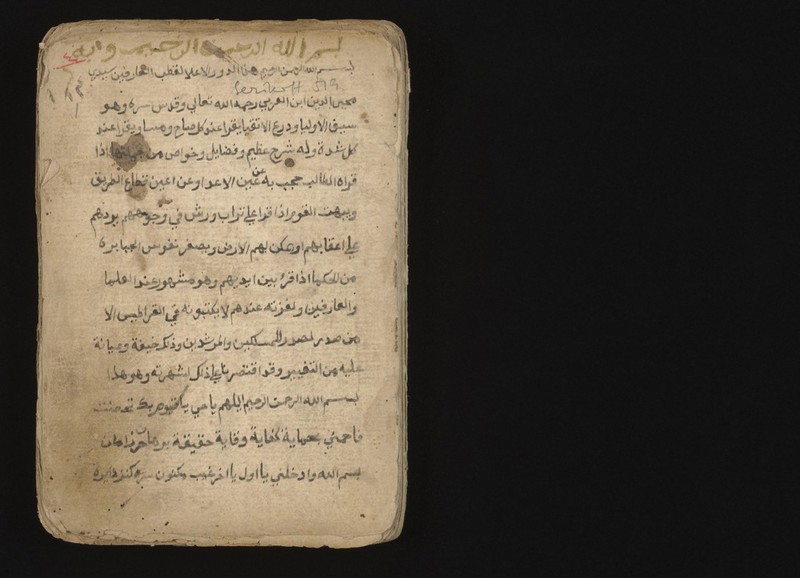 بسم الله الرحمن الرحيم وبه
بسم الله الرحمن الرحيم هذا الدور الاعلا لقطب العارفين سيدي
محيي الدين ابن العربي رحمه الله تعالي وقدس سره وهو
سيف الاوليا ودرع الاتقيا يقرا عند كل صباح ومسا ويقرا عند
كل شدة وله شرح عظيم وفضايل وخواص من اذا
قراه الطالب حجب به عن عين الاعدا وعن اعين قطاع الطريق
ويبهت القوم اذا قرا علي تراب ورش في وجوههم يردهم
علي اعقابهم الارض ويصغر نفوس الجبابرة
من الحكما اذا قرئ بين ايديهم وهو مشهور عند العلما
والعارفين ولعزته عندهم لا يكتبونه في القراطيس الا
من صدر لصدر المسلكين والمرشدين وذلك خيفة وصيانة
عليه من التغيير وقد اقتصرنا علي ذلك لشهرته وهو هذا
بسم الله الرحمن الرحيم اللهم يا حي يا قيوم بك تحصنت
فاحمني بحماية كفاية وقاية حقيقة برهان حرز امان
بسم الله وادخلني يا اول يا اخر غيب مكنون سر كنز دايرة